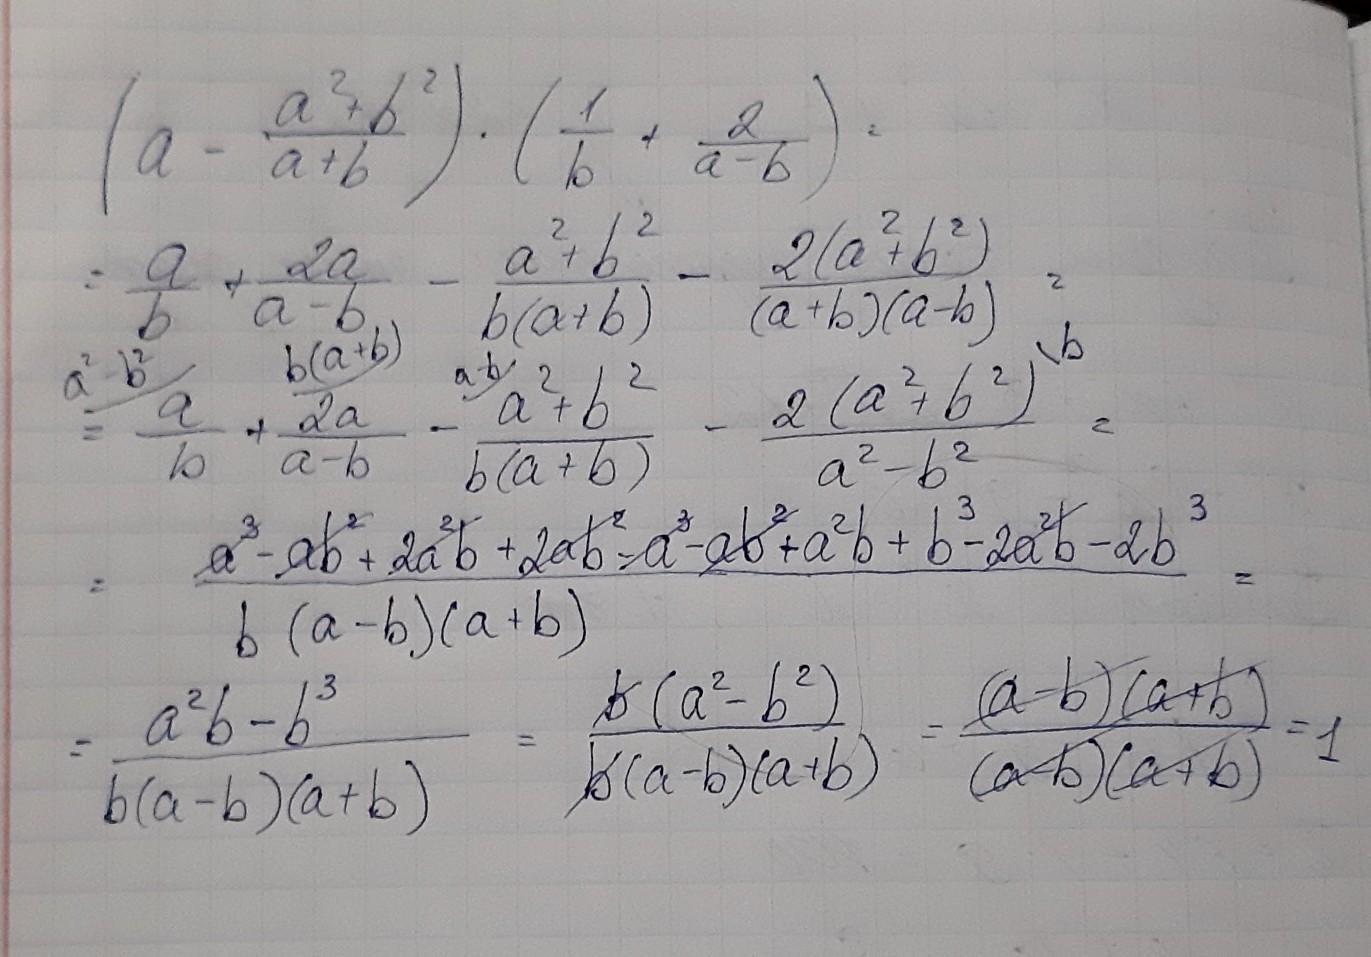 (a - (a²+b²)/(a+b)) · (1/b + 2/(a-b)) =
= a/b + 2a/(a-b) - (a²+b²)/(b(a+b)) - 2(a²+b²)/((a+b)(a-b)) =
= a²-b² / a/b + b(a+b) / 2a/(a-b) - a-b / (a²+b²)/(b(a+b)) - 2(a²+b²)/(a²-b²) \b =
= (a³-ab²+2a²b+2ab²-a³-ab²+a²b+b³-2a²b-2b³)/(b(a-b)(a+b)) =
= (a²b-b³)/(b(a-b)(a+b)) = b(a²-b²)/(b(a-b)(a+b)) = (a-b)(a+b)/((a-b)(a+b)) = 1